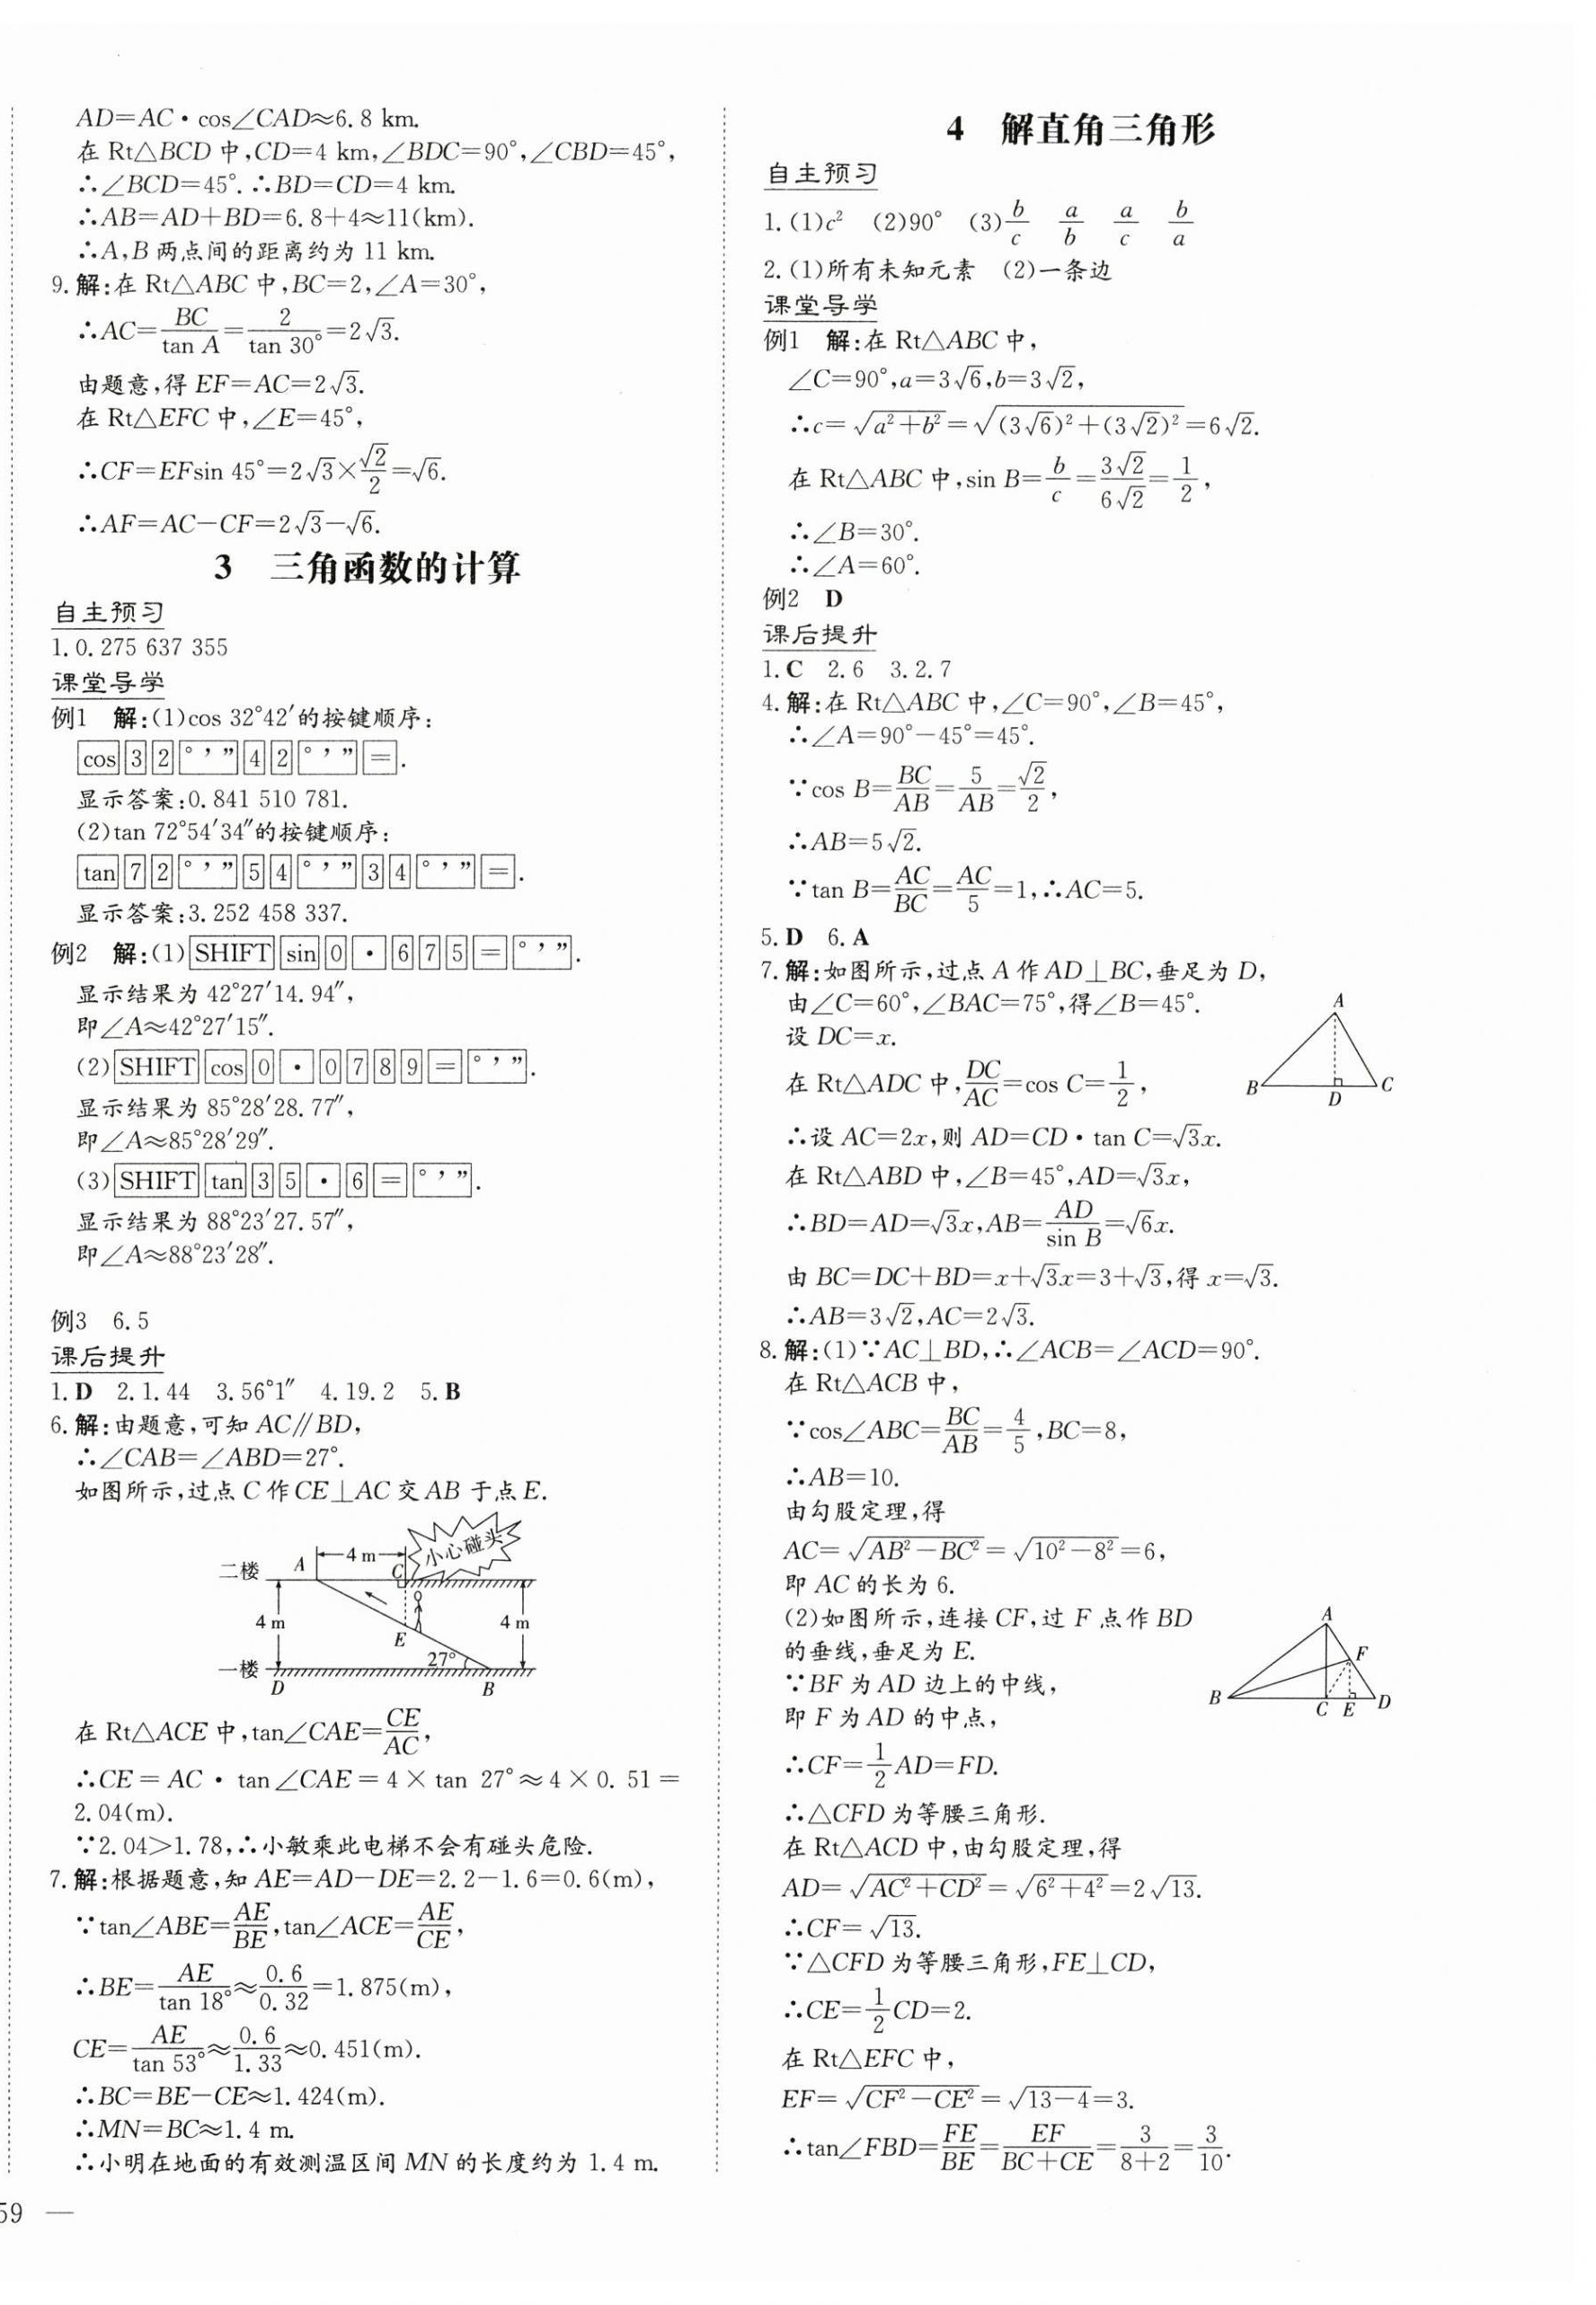 AD=AC·cos∠CAD≈6.8 km.
在 Rt△BCD 中,CD=4 km,∠BDC=90°,∠CBD=45°,
∴∠BCD=45°.∴BD=CD=4 km.
∴AB=AD+BD=6.8+4≈11(km).
∴A,B 两点间的距离约为 11 km.
9.解:在 Rt△ABC 中,BC=2,∠A=30°,
∴AC=BC/tan A=2/tan 30°=2√3.
由题意,得 EF=AC=2√3.
在 Rt△EFC 中,∠E=45°,
∴CF=EFsin 45°=2√3×√2/2=√6.
∴AF=AC−CF=2√3−√6.
3 三角函数的计算
自主预习
1.0.275 637 355
课堂导学
例1 解:(1)cos 32°42′的按键顺序:
cos 3 2 ° ’ ” 4 2 ° ’ ” = .
显示答案:0.841 510 781.
(2)tan 72°54′34″的按键顺序:
tan 7 2 ° ’ ” 5 4 ° ’ ” 3 4 ° ’ ” = .
显示答案:3.252 458 337.
例2 解:(1) SHIFT sin 0 · 6 7 5 = ° ’ ” .
显示结果为 42°27′14.94″,
即∠A≈42°27′15″.
(2) SHIFT cos 0 · 0 7 8 9 = ° ’ ” .
显示结果为 85°28′28.77″,
即∠A≈85°28′29″.
(3) SHIFT tan 3 5 · 6 = ° ’ ” .
显示结果为 88°23′27.57″,
即∠A≈88°23′28″.
例3 6.5
课后提升
1.D 2.1.44 3.56°1″ 4.19.2 5.B
6.解:由题意,可知 AC∥BD,
∴∠CAB=∠ABD=27°.
如图所示,过点 C 作 CE⊥AC 交 AB 于点 E.
小心碰头
二楼 A 4 m C
4 m E 4 m
27°
一楼 D B
在 Rt△ACE 中,tan∠CAE=CE/AC,
∴CE=AC·tan∠CAE=4×tan 27°≈4×0.51=
2.04(m).
∵2.04>1.78,∴小敏乘此电梯不会有碰头危险.
7.解:根据题意,知 AE=AD−DE=2.2−1.6=0.6(m),
∵tan∠ABE=AE/BE,tan∠ACE=AE/CE,
∴BE=AE/tan 18°≈0.6/0.32=1.875(m),
CE=AE/tan 53°≈0.6/1.33≈0.451(m).
∴BC=BE−CE≈1.424(m).
∴MN=BC≈1.4 m.
∴小明在地面的有效测温区间 MN 的长度约为 1.4 m.
59 —
4 解直角三角形
自主预习
1.(1)c² (2)90° (3)b/c a/b a/c b/a
2.(1)所有未知元素 (2)一条边
课堂导学
例1 解:在 Rt△ABC 中,
∠C=90°,a=3√6,b=3√2,
∴c=√(a²+b²)=√((3√6)²+(3√2)²)=6√2.
在 Rt△ABC 中,sin B=b/c=3√2/6√2=1/2,
∴∠B=30°.
∴∠A=60°.
例2 D
课后提升
1.C 2.6 3.2.7
4.解:在 Rt△ABC 中,∠C=90°,∠B=45°,
∴∠A=90°−45°=45°.
∵cos B=BC/AB=5/AB=√2/2,
∴AB=5√2.
∵tan B=AC/BC=AC/5=1,∴AC=5.
5.D 6.A
7.解:如图所示,过点 A 作 AD⊥BC,垂足为 D,
由∠C=60°,∠BAC=75°,得∠B=45°.
设 DC=x.
在 Rt△ADC 中,DC/AC=cos C=1/2,
A
B D C
∴设 AC=2x,则 AD=CD·tan C=√3x.
在 Rt△ABD 中,∠B=45°,AD=√3x,
∴BD=AD=√3x,AB=AD/sin B=√6x.
由 BC=DC+BD=x+√3x=3+√3,得 x=√3.
∴AB=3√2,AC=2√3.
8.解:(1)∵AC⊥BD,∴∠ACB=∠ACD=90°.
在 Rt△ACB 中,
∵cos∠ABC=BC/AB=4/5,BC=8,
∴AB=10.
由勾股定理,得
AC=√(AB²−BC²)=√(10²−8²)=6,
即 AC 的长为 6.
(2)如图所示,连接 CF,过 F 点作 BD
的垂线,垂足为 E.
∵BF 为 AD 边上的中线,
即 F 为 AD 的中点,
A
F
B C E D
∴CF=1/2AD=FD.
∴△CFD 为等腰三角形.
在 Rt△ACD 中,由勾股定理,得
AD=√(AC²+CD²)=√(6²+4²)=2√13.
∴CF=√13.
∵△CFD 为等腰三角形,FE⊥CD,
∴CE=1/2CD=2.
在 Rt△EFC 中,
EF=√(CF²−CE²)=√(13−4)=3.
∴tan∠FBD=FE/BE=EF/(BC+CE)=3/(8+2)=3/10.